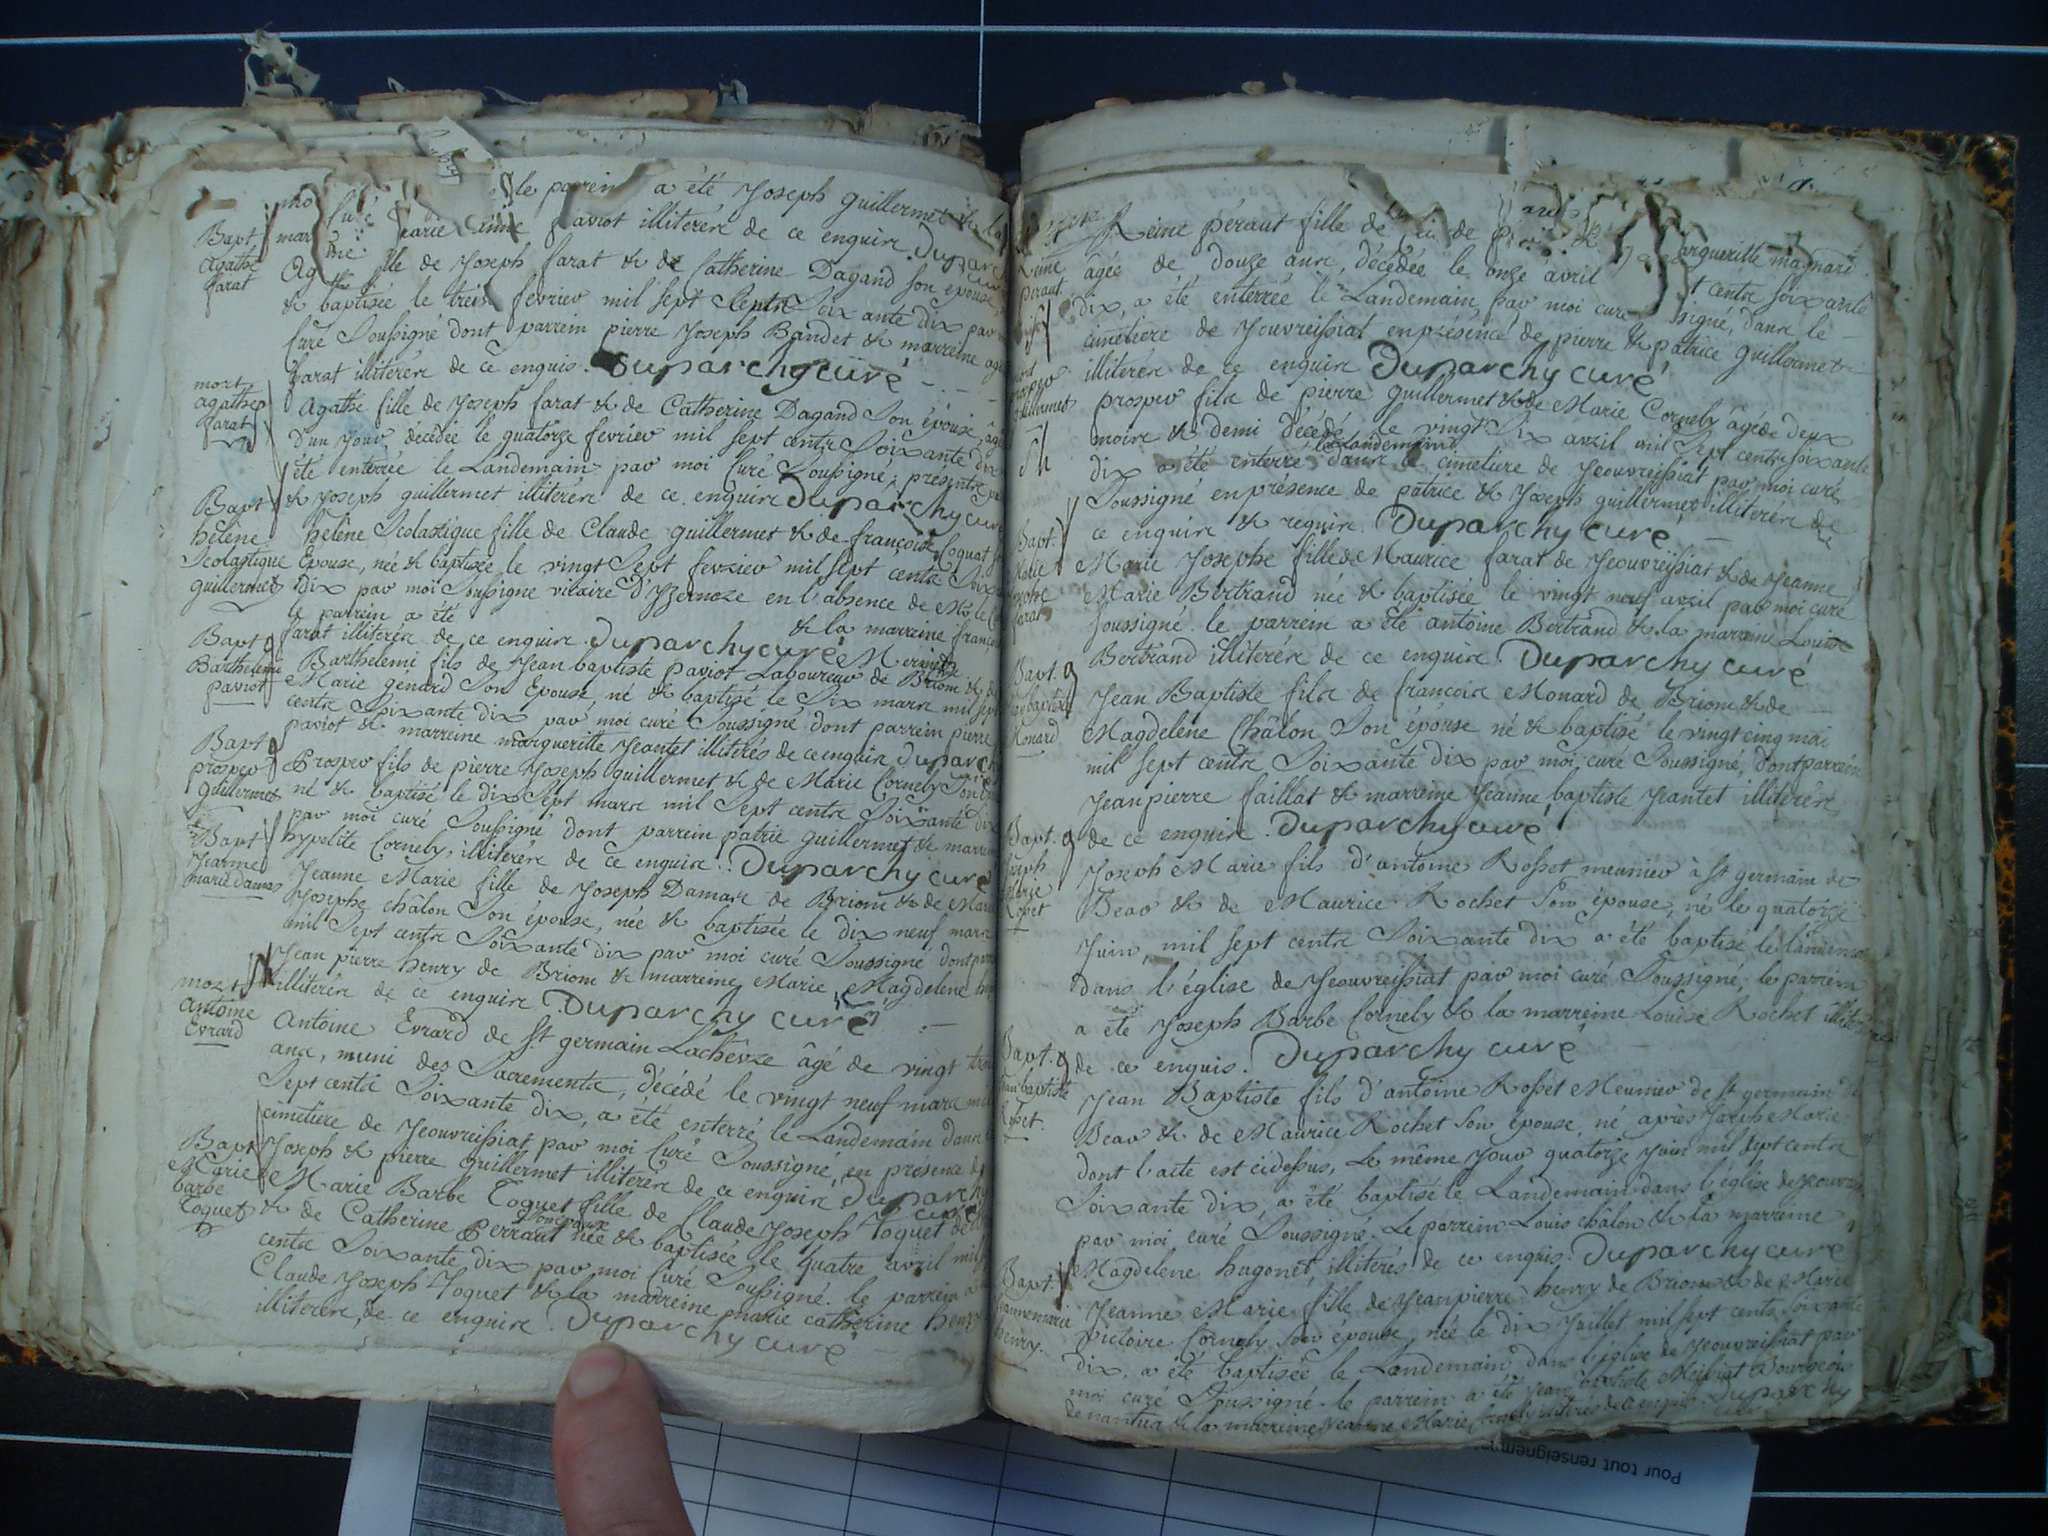 le parrein a été Joseph guillermet & la
Marie anne paviot illiterés de ce enquire Duparchy
Bapt
Agathe
farat
fille de Joseph farat & de Catherine Dagand son épouse
& baptisée le treize fevrier mil sept cents soixante dix par
curé Soussigné dont parrein pierre Joseph Bandet & marreine
farat illiterés de ce enquis. Duparchy curé
mort
agathe
farat
Agathe fille de Joseph farat & de Catherine Dagand Son épouse, âgée
D'un jour décédée le quatorze fevrier mil sept cents Soixante dix
été enterrée le Landemain par moi Curé Soussigné, présents
& Joseph guillermet illiterés de ce enquire Duparchy curé
Bapt
hélène
Scolastique
guillermet
hélène Scolastique fille de Claude guillermet & de françoise Coquat
Epouse, née & baptisée le vingt Sept fevrier mil sept cents Soixante
Dix par moi Soussigné vicaire D'Yzernoze en l'absence de Mr le
le parrein a été & la marreine francoise
farat illiterés de ce enquire. Duparchy curé
Bapt
Barthelemi
paviot
Barthelemi fils de Jean baptiste paviot Laboureur de Briom & de
Marie génard Son Epouse, né & baptisé le Six mars mil sept
cents Soixante dix par moi curé Soussigné dont parrein pierre
paviot & marreine marguerille Jeantet illiterés de ce enquis Duparchy
Bapt
prosper
guillermet
Prosper fils de pierre Joseph guillermet & de Marie Cornely Son
né & baptisé le dix Sept mars mil Sept cents Soixante dix
par moi curé Soussigné dont parrein patrice guillermet & marreine
hypolite Cornely, illiterés de ce enquire. Duparchy curé
Bapt
Jeanne
marie damas
Jeanne Marie fille de Joseph Damas de Briom & de Marie
Josephe châlon Son épouse, née & baptisée le dix neuf mars
mil Sept cents Soixante dix par moi curé Soussigné dont parrein
Jean pierre henry de Briom & marreine Marie Magdelene
illiterés de ce enquire Duparchy curé
mort
Antoine
Evrard
Antoine Evrard de St germain Lachèvre âgé de vingt trois
ans, muni des Sacrements, décédé le vingt neuf mars mil
Sept cents Soixante dix, a été enterré le Landemain dans
cimetiere de Jeouvreissiat par moi Curé Soussigné, en présence de
Joseph & pierre guillermet illiterés de ce enquire Duparchy
curé
Bapt
Marie
barbe
Toquet
Marie Barbe Toquet fille de Claude Joseph Toquet de
& de Catherine perraut Son épouse née & baptisée le quatre avril mil
cents Soixante dix par moi Curé Soussigné. le parrein a
Claude Joseph Toquet & la marreine marie catherine henry
illiterés, de ce enquire. Duparchy curé
Reine peraut
Reine péraut fille de marguerille maynard
âgée de douze ans, décédée le onze avril cents soixante
dix, a été enterrée le Landemain, par moi curé signé, dans le
cimetiere de Jouvreissiat en présence de pierre & patrice guillermet
illiterés de ce enquire Duparchy curé
mort
prosper
guillermet
prosper fils de pierre guillermet & de Marie Cornely âgé de deux
mois & demi décédé le vingt Six avril mil Sept cents soixante
dix a été enterré le Landemain dans le cimetiere de Jeouvreissiat par moi curé
Soussigné en présence de patrice & Joseph guillermet illiterés de
ce enquire & require. Duparchy curé
Bapt.
Marie
josephe
farat
Marie Josephe fille de Maurice farat de Jeouvreissiat & de Jeanne
Marie Bertrand née & baptisée le vingt neuf avril par moi curé
Soussigné. le parrein a été antoine Bertrand & la marreine Louise
Bertrand illiterés de ce enquire. Duparchy curé
Bapt.
jean baptiste
Monard
Jean Baptiste fils de francois Monard de Briom & de
Magdelene Châlon Son épouse né & baptisé le vingt cinq mai
mil sept cents Soixante dix par moi curé Soussigné, dont parrein
Jean pierre faillat & marreine Jeanne baptiste Jeantet illiterés
de ce enquire. Duparchy curé
Bapt.
joseph
Marie
Rosset
Joseph Marie fils d'antoine Rosset meunier à St germain de
Beau & de Maurice Rochet Son épouse, né le quatorze
Juin, mil sept cents Soixante dix a été baptisé le landemain
dans l'église de Jeouvreissiat par moi curé Soussigné. le parrein
a été Joseph Barbe Cornely & la marreine Louise Rochet illiterés
de ce enquis. Duparchy curé
Bapt.
jean baptiste
Rosset.
Jean Baptiste fils d'antoine Rosset Meunier de St germain de
Beau & de Maurice Rochet Son épouse, né après Joseph Marie
dont l'acte est cidessus, Le même jour quatorze juin mil sept cents
Soixante dix, a été baptisé le Landemain dans l'église de Jeouvreissiat
par moi curé Soussigné. Le parrein Louis châlon & la marreine
Magdelene hugonet, illiterés de ce enquis. Duparchy curé
Bapt.
jeanne marie
henry.
Jeanne Marie fille de Jean pierre henry de Briom & de Marie
Victoire Cornely Son épouse, née le dix Juillet mil sept cents Soixante
dix, a été baptisée le Landemain dans l'église de Jeouvreissiat par
moi curé Soussigné. le parrein a été Jean baptiste Meissiat Bourgeois
de nantua & la marreine Jeanne Marie Cornely illiterés de ce enquis. Duparchy
Pour tout renseignement